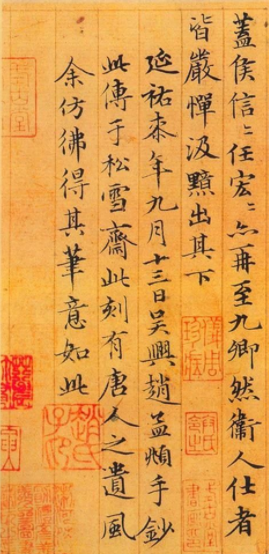 蓋侯信〻任宏〻亦再至九卿然衞人仕者
皆嚴憚汲黯出其下
延祐柒年九月十三日吳興趙孟頫手鈔
此傳于松雪齋此刻有唐人之遺風
余仿彿得其筆意如此
趙氏子昂